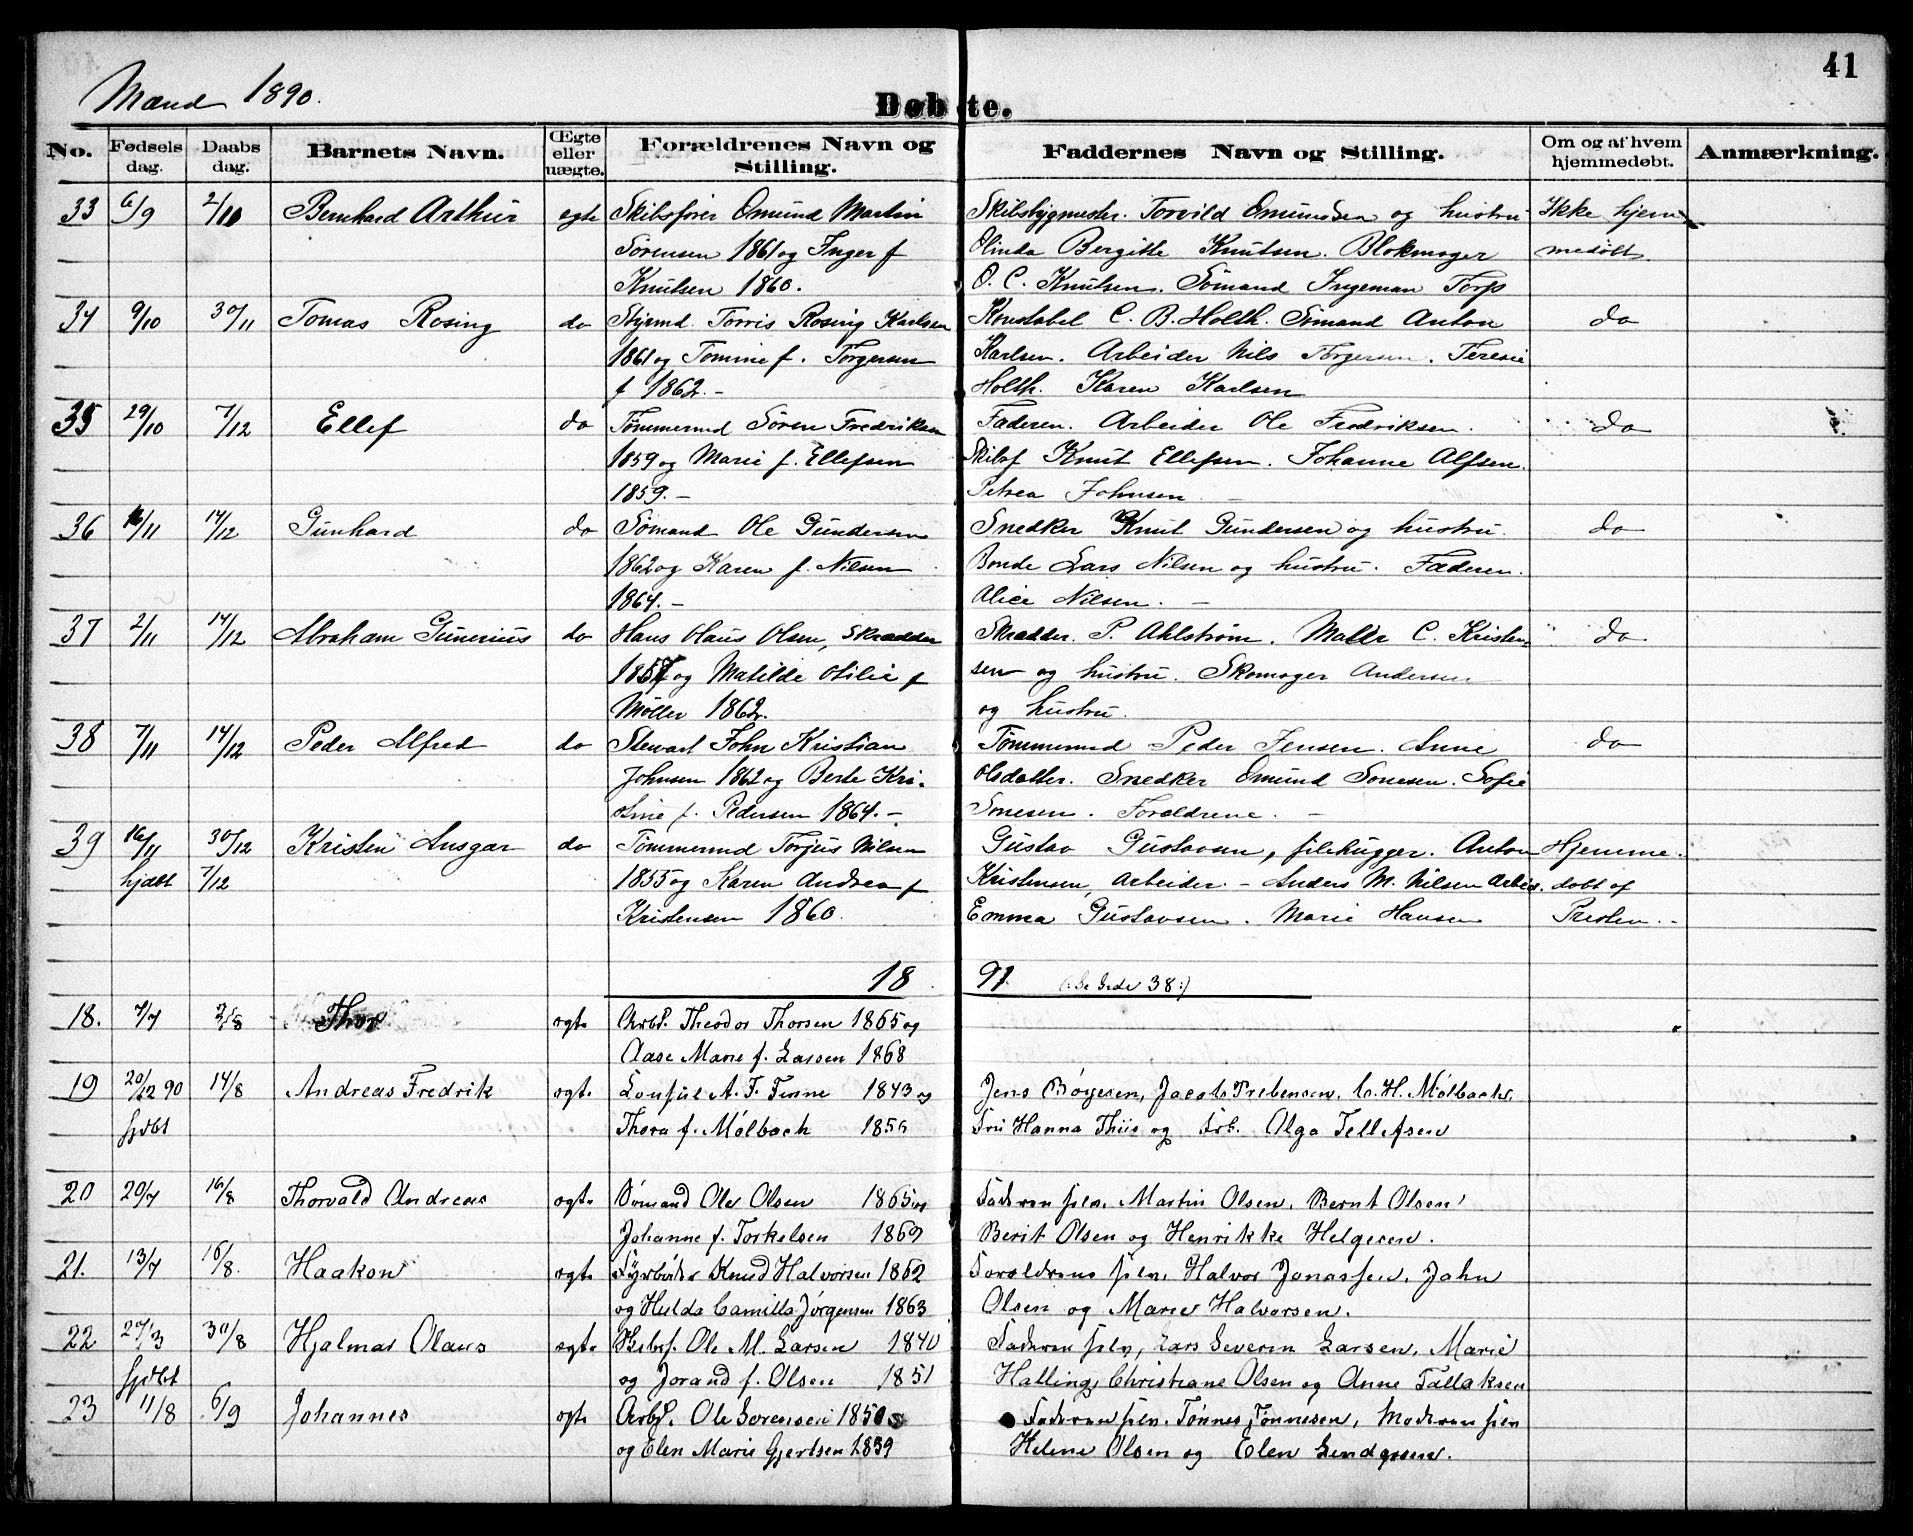 41
Mænd 1890.
Døbte.
No. Fødsels dag. Daabs dag. Barnets Navn. Œgte eller uægte. Forældrenes Navn og Stilling. Faddernes Navn og Stilling. Om og af hvem hjemmedøbt. Anmærkning.
33 6/9 2/10 Bernhard Arthur egte Skibsfører Omund Martin Skibsbygmester. Torvild Omundsen og hustru Ikke hjem
Sørensen 1861 og Inger f Olinda Bergitte Knutsen. Blokmager medøbt
Knutsen 1860. O. C. Knutsen. Sømand Ingeman Torp
34 9/10 30/11 Tomas Rosing do Styrmd. Torris Rosing Karlsen Konstabel C. B. Holth. Sømand Anton do
1861 og Tomine f. Torgersen Karlsen. Arbeider Nils Torgersen. Teresie
f 1862.- Holth. Karen Karlsen
35 29/10 7/12 Ellef do Tømmermd Søren Fredriksen Faderen. Arbeider Ole Fredriksen. do
1859 og Marie f. Ellefsen Skibsf Knut Ellefsen. Johanne Alfsen.
1859.- Petrea Johnsen. -
36 16/11 14/12 Gunhard do Sømand Ole Gundersen Snedker Knut Gundersen og hustru. do
1862 og Karen f. Nilsen Bonde Lars Nilsen og hustru. Faderen.
1864.- Alice Nilsen. -
37 2/11 14/12 Abraham Gunerius do Hans Olaus Olsen, Skrædder Skrædder. P. Ahlström. Maler C. Kristen- do
1857 og Matilde Otilie f sen og hustru. Skomager Andersen
Møller 1862. og hustru.
38 7/11 14/12 Peder Alfred do Stewart John Kristian Tømmermd Peder Jensen. Anne do
Johnsen 1862 og Berte Kri- Olsdatter. Snedker Omund Sonesen. Sofie
stine f. Pedersen 1864.- Sonesen. Forældrene. -
39 16/11 30/12 Kristen Ansgar do Tømmermd Torjus Nilsen Gustav Gustavsen, filehugger. Anton Hjemme-
hjdbt 7/12 1855 og Karen Andrea f Kristensen, Arbeider. - Anders M. Nilsen Arbeid. døbt af
Kristensen 1860. Emma Gustavsen. Marie Hansen Presten.-
18 91 (:Se Side 38:)
18. 7/7 2/8 Thor ogte Arbd. Theodor Thorsen 1865 og
Aase Marie f. Larsen 1868
19 20/12 90 14/8 Andreas Fredrik ogte Konsul A. F. Finne 1843 og Jens Börgesen, Jacob Prebensen. C. H. Mölbach.
hjdbt Thora f. Mölbach Fru Hanna Thiis og Frk. Olga Tellefsen
20 20/7 16/8 Thorvald Andreas ogte Sömand Ole Olsen 1865 og Faderen selv. Martin Olsen. Bernt Olsen
Johanne f. Torkelsen 1869 Berit Olsen og Henrikke Helgesen.
21. 13/7 16/8. Haakon ogte Fyrböder Knud Halvorsen 1862 Foroldrene selv. Halvor Jonassen. John
og Hulda Camilla Jörgensen 1863 Olsen og Marie Halvorsen.
22 27/3 30/8 Hjalmar Olaus ogte Skibsf. Ole M. Larsen 1840 Faderen selv, Lars Severin Larsen, Marie
hjdbt og Jorand f. Olsen 1851 Halling, Christiane Olsen og Anne Tallaksen
23 11/8 6/9 Johannes ogte Arbd. Ole Sorensen 1850 Faderen selv. Tönnes Tönnesen, Moderen selv
og Elen Marie Gjertsen 1859 Helene Olsen og Elen